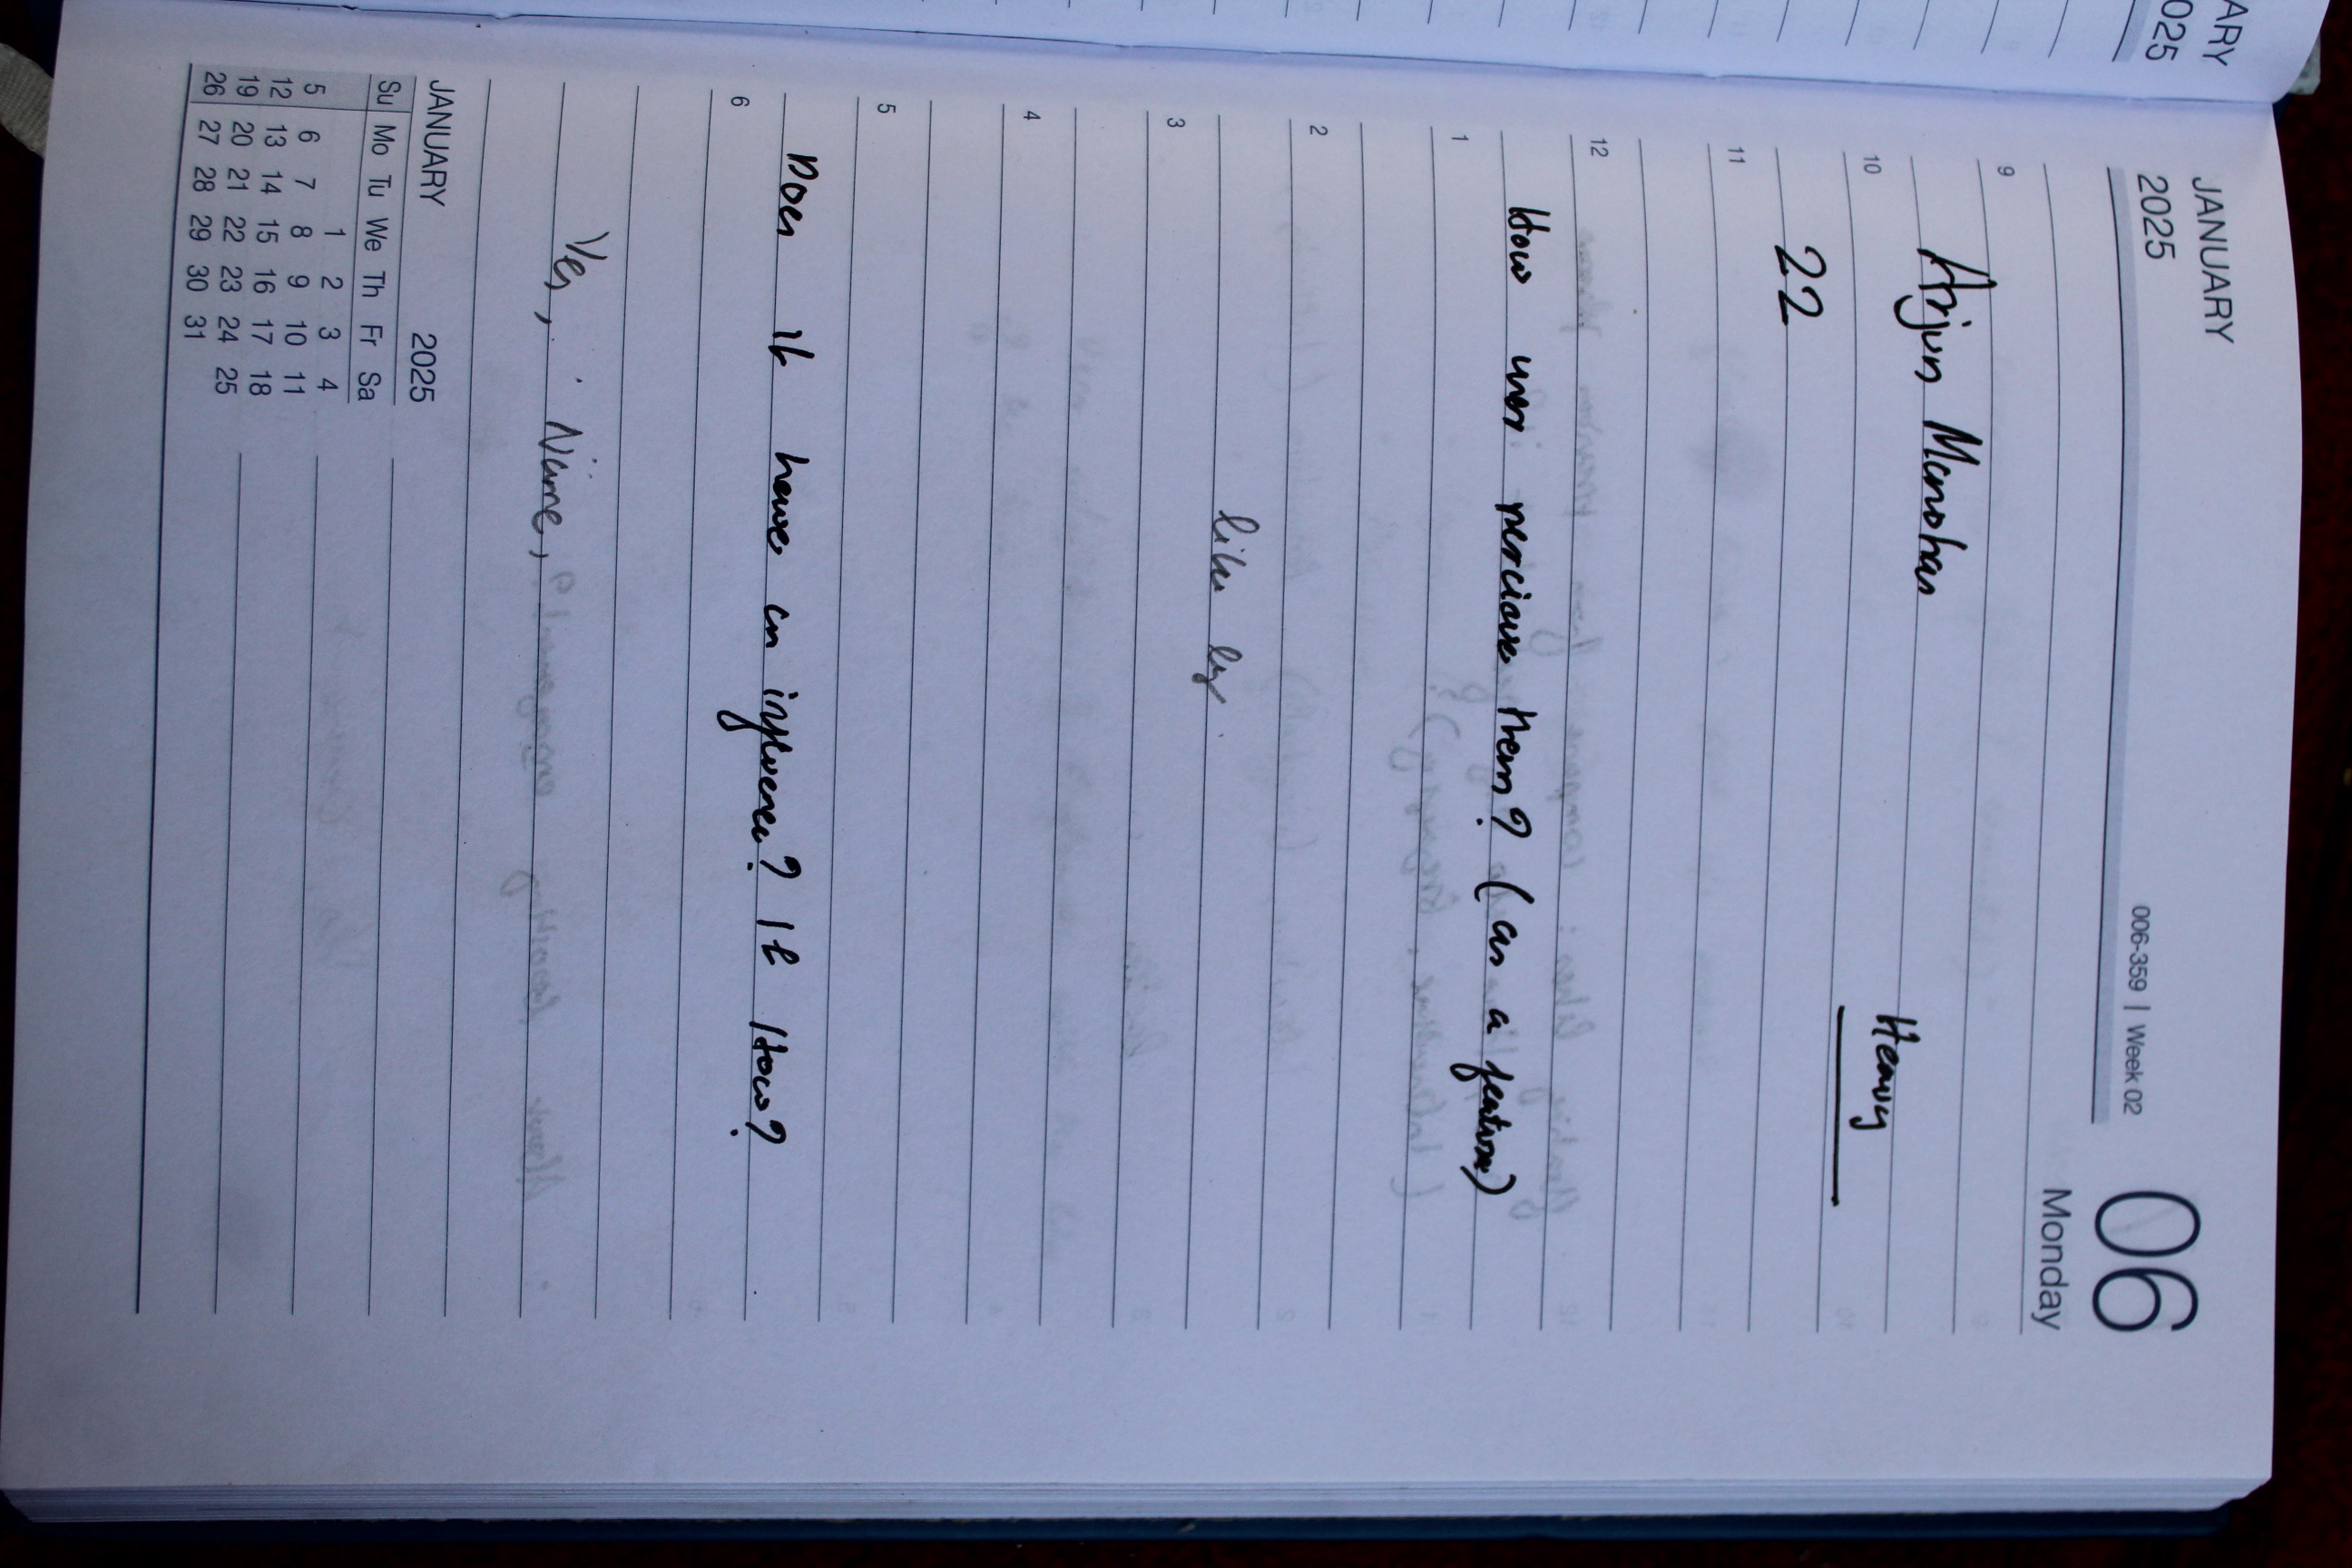 ARY
025
JANUARY
2025
006-359 | Week 02
06
Monday
9
Arjun Manohar
Heavy
10
22
11
12
How user perciave them? (as a feature)
1
2
like by
3
4
5
Does it have an influence? If How?
6
Yes, Name,
JANUARY 2025
Su Mo Tu We Th Fr Sa
1 2 3 4
5 6 7 8 9 10 11
12 13 14 15 16 17 18
19 20 21 22 23 24 25
26 27 28 29 30 31